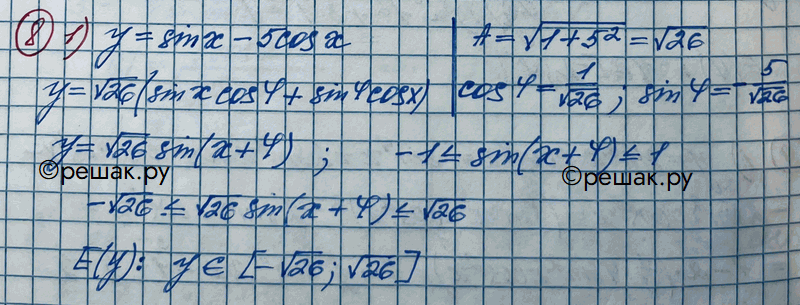 ⑧ 1) y = sinx − 5cosx | A = √(1+5²) = √26
y = √26 (sinx cosφ + sinφ cosx) | cosφ = 1/√26 ; sinφ = −5/√26
y = √26 sin(x+φ) ; −1 ≤ sin(x+φ) ≤ 1
©решак.ру ©решак.ру
−√26 ≤ √26 sin(x+φ) ≤ √26
E(y): y ∈ [−√26 ; √26]